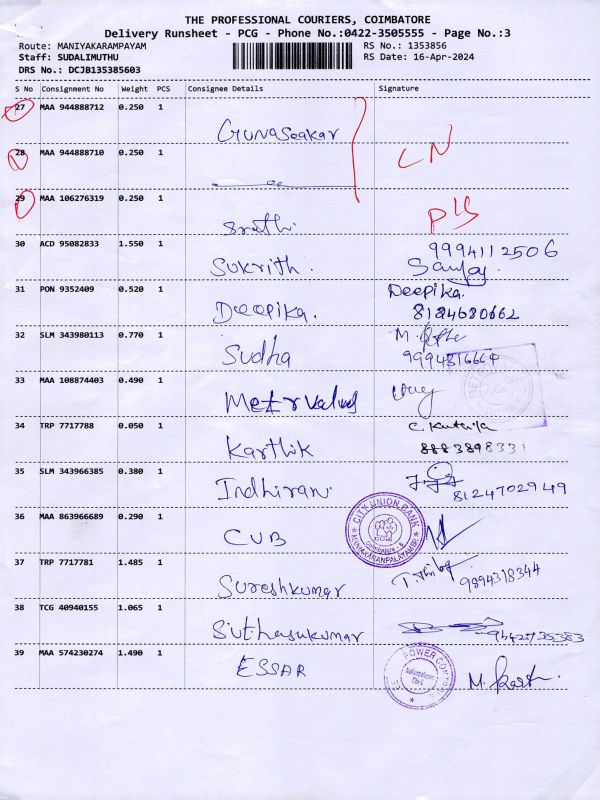 THE PROFESSIONAL COURIERS, COIMBATORE
Delivery Runsheet - PCG - Phone No.:0422-3505555 - Page No.:3
Route: MANIYAKARAMPAYAM
RS No.: 1353856
Staff: SUDALIMUTHU
RS Date: 16-Apr-2024
DRS No.: DCJB135385603
S No Consignment No Weight PCS Consignee Details Signature
27 MAA 944888712 0.250 1
Gunaseakar
28 MAA 944888710 0.250 1
CN
29 MAA 106276319 0.250 1
Sruthi.
30 ACD 95082833 1.550 1 9994112506
Sukrith. Sanjay
31 PON 9352409 0.520 1 Deepika.
Deepika. 8184680662
32 SLM 343980113 0.770 1 M.
Sudha 9994816664
33 MAA 108874403 0.490 1
Meter Values
34 TRP 7717788 0.050 1 C.
Karthik 8883898331
35 SLM 343966385 0.380 1
Indhirani 8124702949
36 MAA 863966689 0.290 1
CUB
CITY UNION BANK
37 TRP 7717781 1.485 1
Sureshkumar 9894318344
38 TCG 40940155 1.065 1
Suthasukumar
39 MAA 574230274 1.490 1
ESSAR
POWER
M.